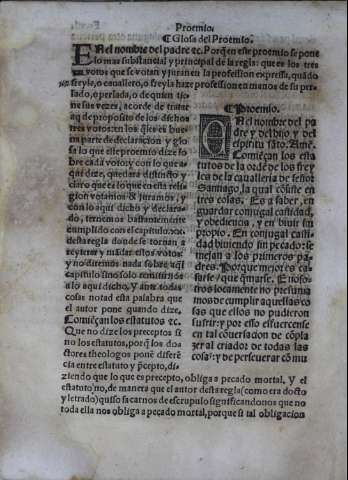 Proemio.
¶ Glosa del Proemio.
EN el nombre del padre ꝛc. Porq̃ en este proemio se pone
lo mas substancial y principal de la regla: que es los tres
votos que se votan y juran en la profession expressa, quãdo
freyle, o cavallero, o freyla haze profession en manos de su perlado,
o perlada, o de quien tiene
sus vezes, acorde de tratar
aq̃ de proposito de los dichos
tres votos: en los q̃les es buena
parte de declaracion y glosa
lo que elle proemio dize sobre
cada voto: y con lo que a
qui dize, quedara distincto y
claro que es lo que en esta religion
votamos & juramos, y
con lo aqui dicho y declarado,
ternemos bastantemente
cumplido con el capitulo.
desta regla donde se tornan a
reyterar y mãdar ellos votos:
y no diremos nada sobre aq̃l
capitulo sino solo remitirnos
a lo aqui dicho, y ante todas
cosas notad esta palabra que
el autor pone quando dize,
Comiẽçan los estatutos ꝛc.
Que no dize los preceptos si
no los estatutos, porq̃ los doctores
theologos ponẽ diferẽcia
entre estatuto y p̃cepto, diziendo
que lo que es precepto, obliga a pecado mortal, y el
estatuto no, de manera que el autor desta regla (como era docto
y letrado) quisso sacarnos de escrupulo significandonos que no
toda ella nos obliga a pecado mortal, porque si tal obligacion
¶ Proemio.
EN el nombre del padre
y del hijo y del
espiritu sãto. Amẽ.
Comiẽçan los estatutos
de la ordẽ de los freyles
de la cavalleria de señor
Santiago, la qual cõsiste en
tres cosas. Es a saber, en
guardar conjugal castidad,
y obediencia, y en bivir sin
proprio. En conjugal castidad
biviendo sin pecado: semejan
a los primeros padres.
Porque mejor es casarse
que q̃marse. E nosotros
locamente no presumamos
de cumplir aquellas cosas
que ellos no pudieron
sufrir: y por esso esfuercense
en tal conversacion de cõplazer
al criador de todas las
cosas: y de perseverar cõ mu